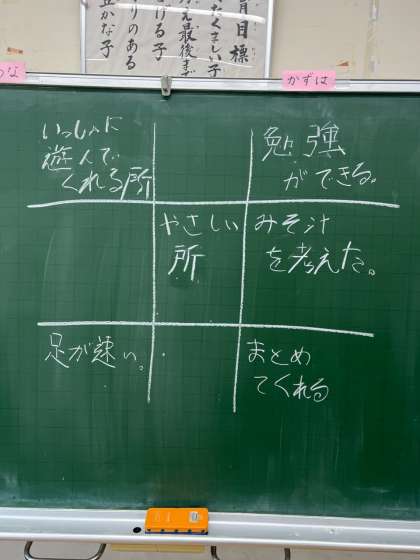 月目標
たくましい子
え最後まで
ける子
りのある
豊かな子
かずは
いっしょに
遊んで
くれる所
勉強
ができる。
やさしい
所
みそ汁
を考えた。
足が速い。
まとめ
てくれる